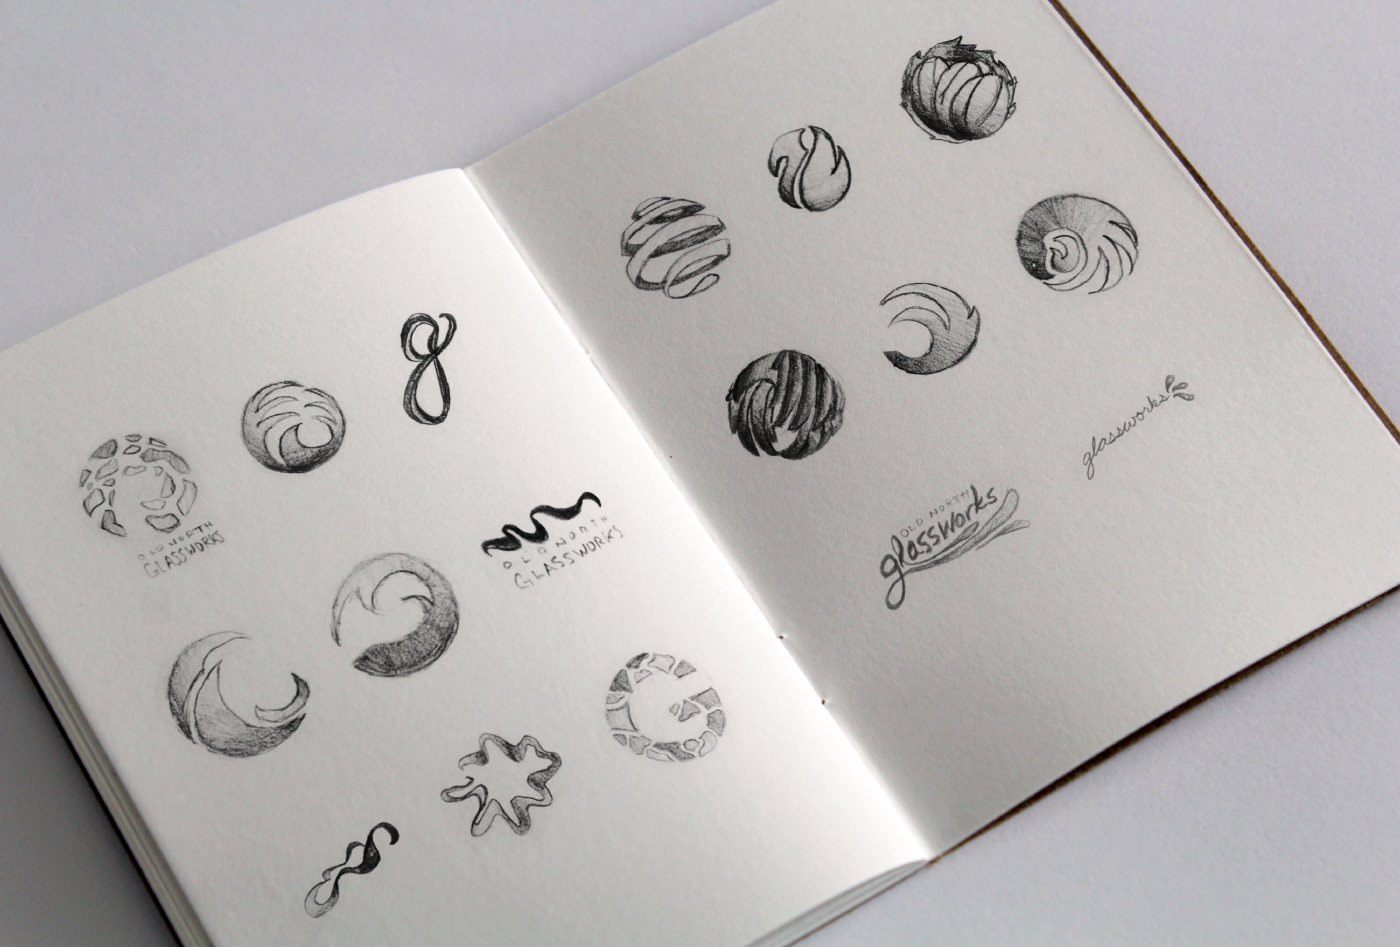 OLD NORTH
GLASSWORKS
OLD NORTH
GLASSWORKS
OLD NORTH
glassworks
glassworks